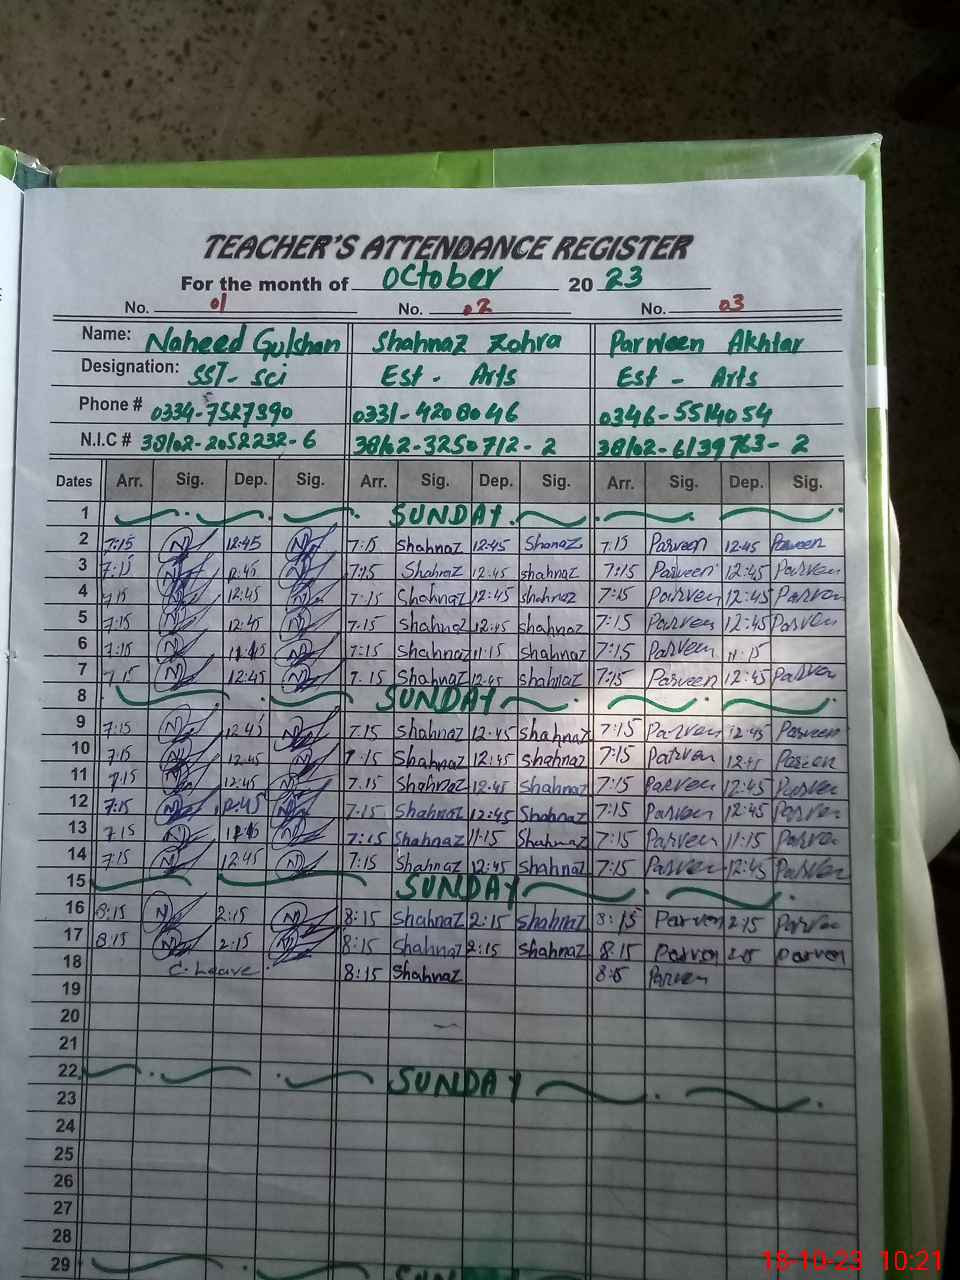 TEACHER'S ATTENDANCE REGISTER
For the month of October 2023
No. 01 No. 02 No. 03
Name: Naheed Gulshan Shahnaz Zohra Parween Akhtar
Designation: SST- Sci Est - Arts Est - Arts
Phone # 0334-7527390 0331-4208046 0346-5514054
N.I.C # 38102-2052232-6 38102-3250712-2 38102-6139763-2
Dates Arr. Sig. Dep. Sig. Arr. Sig. Dep. Sig. Arr. Sig. Dep. Sig.
1 SUNDAY
2 7:15 N 12:45 N 7:15 Shahnaz 12:45 Shanaz 7:15 Parveen 12:45 Parveen
3 7:15 N 12:45 N 7:15 Shahnaz 12:45 shahnaz 7:15 Parveen 12:45 Parveen
4 7:15 N 12:45 N 7:15 Shahnaz 12:45 shahnaz 7:15 Parven 12:45 Parven
5 7:15 N 12:45 N 7:15 Shahnaz 12:45 shahnaz 7:15 Parven 12:45 Parven
6 7:15 N N 7:15 Shahnaz 11:15 shahnaz 7:15 Parveen 11:15
7 7:15 N 12:45 N 7:15 Shahnaz 12:45 shahnaz 7:15 Parveen 12:45 Parven
8 SUNDAY
9 7:15 N 12:45 N 7:15 Shahnaz 12:45 shahnaz 7:15 Parven 12:45 Parveen
10 7:15 N 12:45 N 7:15 Shahnaz 12:45 shahnaz 7:15 Parven 12:45
11 7:15 N 12:45 N 7:15 Shahnaz 12:45 Shahnaz 7:15 Parveen 12:45 Parven
12 7:15 N 12:45 N 7:15 Shahnaz 12:45 Shahnaz 7:15 Parveen 12:45 Parven
13 7:15 N N 7:15 Shahnaz 11:15 Shahnaz 7:15 Parveen 11:15 Parven
14 7:15 N 12:45 N 7:15 Shahnaz 12:45 Shahnaz 7:15 Parveen 12:45 Parven
15 SUNDAY
16 8:15 N 2:15 N 8:15 Shahnaz 2:15 Shahnaz 8:15 Parven 2:15 Parven
17 8:15 N 2:15 N 8:15 Shahnaz 2:15 Shahnaz 8:15 Parven 2:15 Parven
18 C. Leave. 8:15 Shahnaz 8:15 Parven
19
20
21
22 SUNDAY
23
24
25
26
27
28
29 SUNDAY
18-10-23 10:21